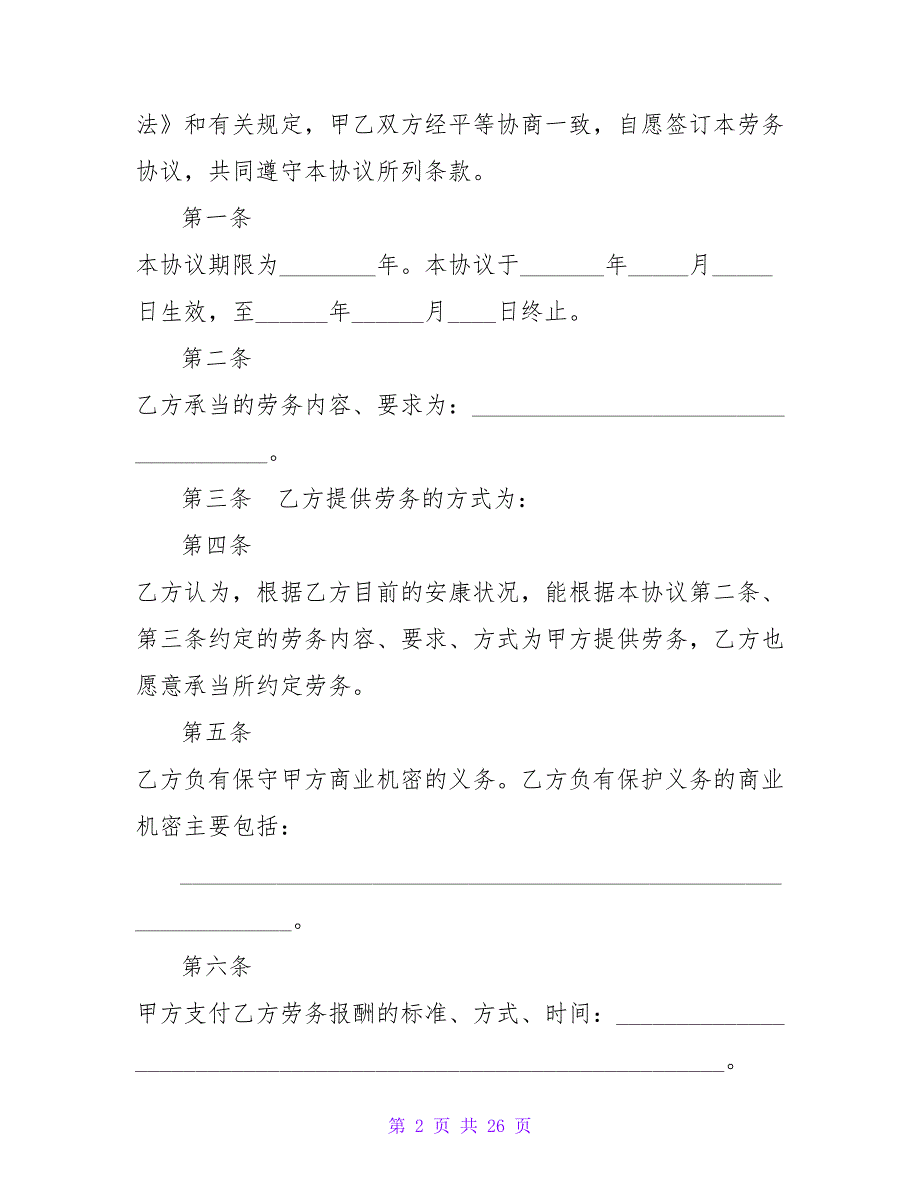 法》和有关规定，甲乙双方经平等协商一致，自愿签订本劳务
协议，共同遵守本协议所列条款。
第一条
本协议期限为________年。本协议于_______年_____月_____
日生效，至______年______月____日终止。
第二条
乙方承当的劳务内容、要求为：__________________________
___________。
第三条　乙方提供劳务的方式为：
第四条
乙方认为，根据乙方目前的安康状况，能根据本协议第二条、
第三条约定的劳务内容、要求、方式为甲方提供劳务，乙方也
愿意承当所约定劳务。
第五条
乙方负有保守甲方商业机密的义务。乙方负有保护义务的商业
机密主要包括：
__________________________________________________
_____________。
第六条
甲方支付乙方劳务报酬的标准、方式、时间：______________
_________________________________________________。
第 2 页 共 26 页